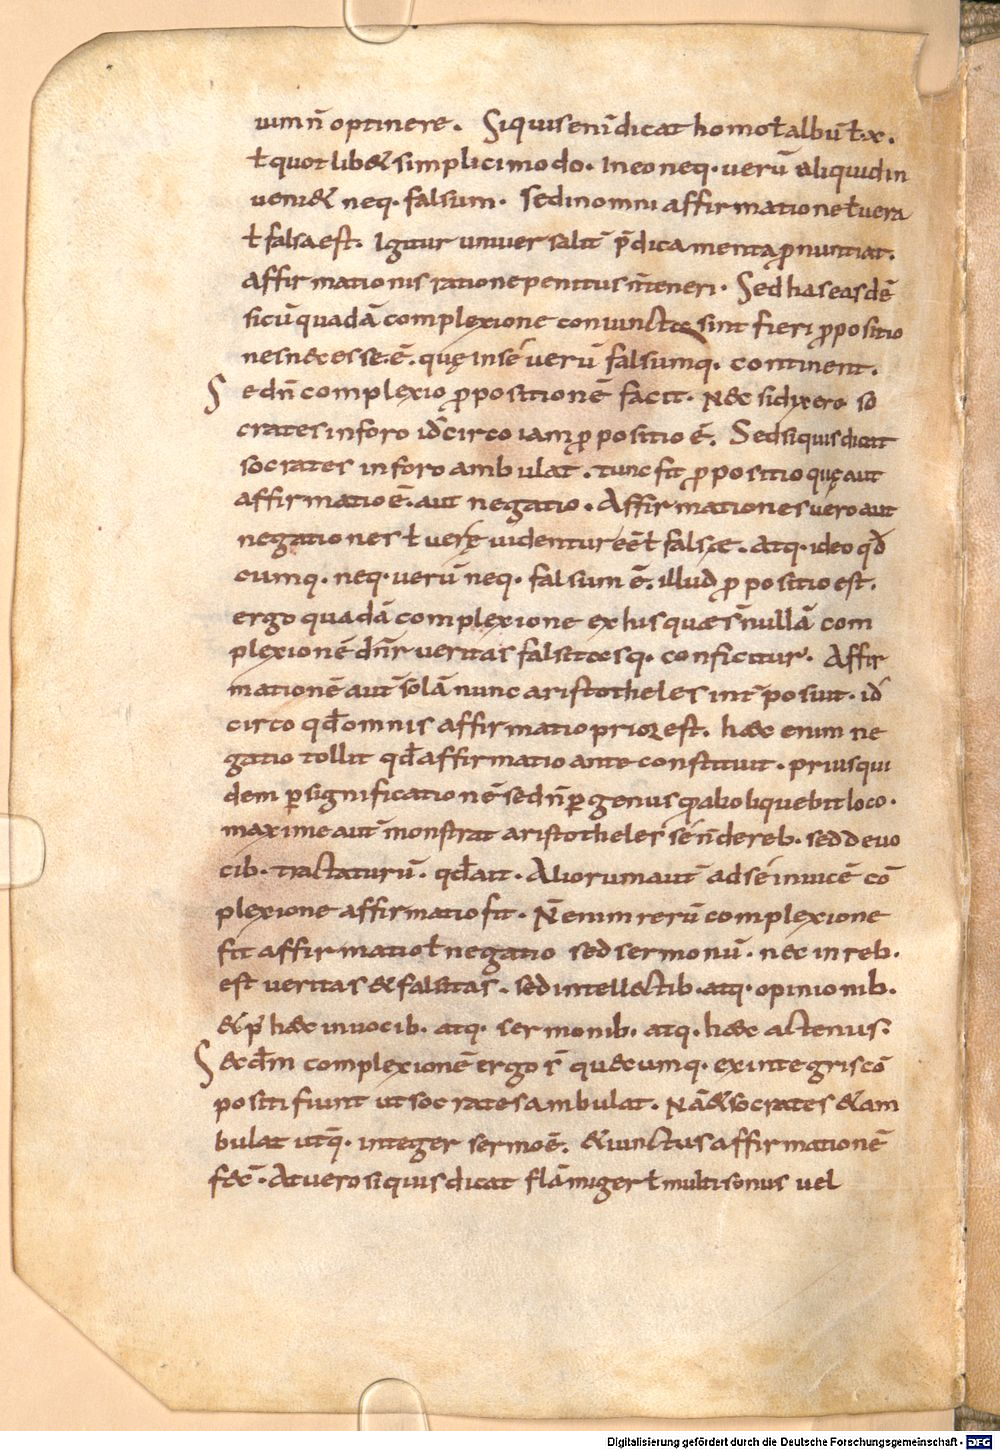 uim n̄ optinere. Siquis eni᷒ dicat homo ł albū ł.x.
ł quot lib& simplici modo. In eo neq. verū aliquid in
veni& neq. falsum. Sed in omni affirmatione ł vera
ł falsa est. Igitur universalit̄ p̄dicamenta pnuntiat.
affirmationis ratione penitus n̄ teneri. Sed has easdē
sicū quadā complexione coniunctæ sint fieri ppositio
nes necesse.ē. quę in sé verū falsumq. continent.
Sed n̄ complexio ppositionē facit. Nec si dixero so
crates in foro id̄circo iam ppositio ē. Sed si quis dicat
socrates in foro ambulat. tunc fit ppositio quę aut
affirmatio ē. aut negatio. Affirmationes vero aut
negationes ł verę videntur eē ł falsæ. atq. ideo qd̄
cumq. neq. verū neq. falsum ē. illud ppositio est.
ergo quadā complexione ex his quæ s̄ nullā com
plexionē dn̄r veritas falsitasq. conficitur. Affir
mationē aut̄ solā nunc aristotheles int̄posuit. id̄
circo qd̄ omnis affirmatio prior est. hæc enim ne
gatio tollit qd̄ affirmatio ante constituit. prius qui
dem p significationē sed n̄ p genus q alio liquebit loco.
maxime aut̄ monstrat aristotheles sé n̄ de reb. sed de vo
cib. tractaturū. qd̄ ait. Aliorum aut̄ ad sé invicē cō
plexione affirmatio fit. N̄ enim rerū complexione
fit affirmatio ł negatio sed sermonū. nec in reb.
est veritas & falsitas. sed intellectib. atq. opinionib.
& p̄ hæc in vocib. atq. sermonib. atq. hæc actenus.
Secd̄m complexionē ergo s̄ quecumq. ex integris cō
positi fiunt ut socrates ambulat. Nā & socrates & am
bulat utq̄. integer sermo ē. & iunctus affirmationē
fec̄. At vero si quis dicat flāmiger ł multisonus vel
Digitalisierung gefördert durch die Deutsche Forschungsgemeinschaft - DFG